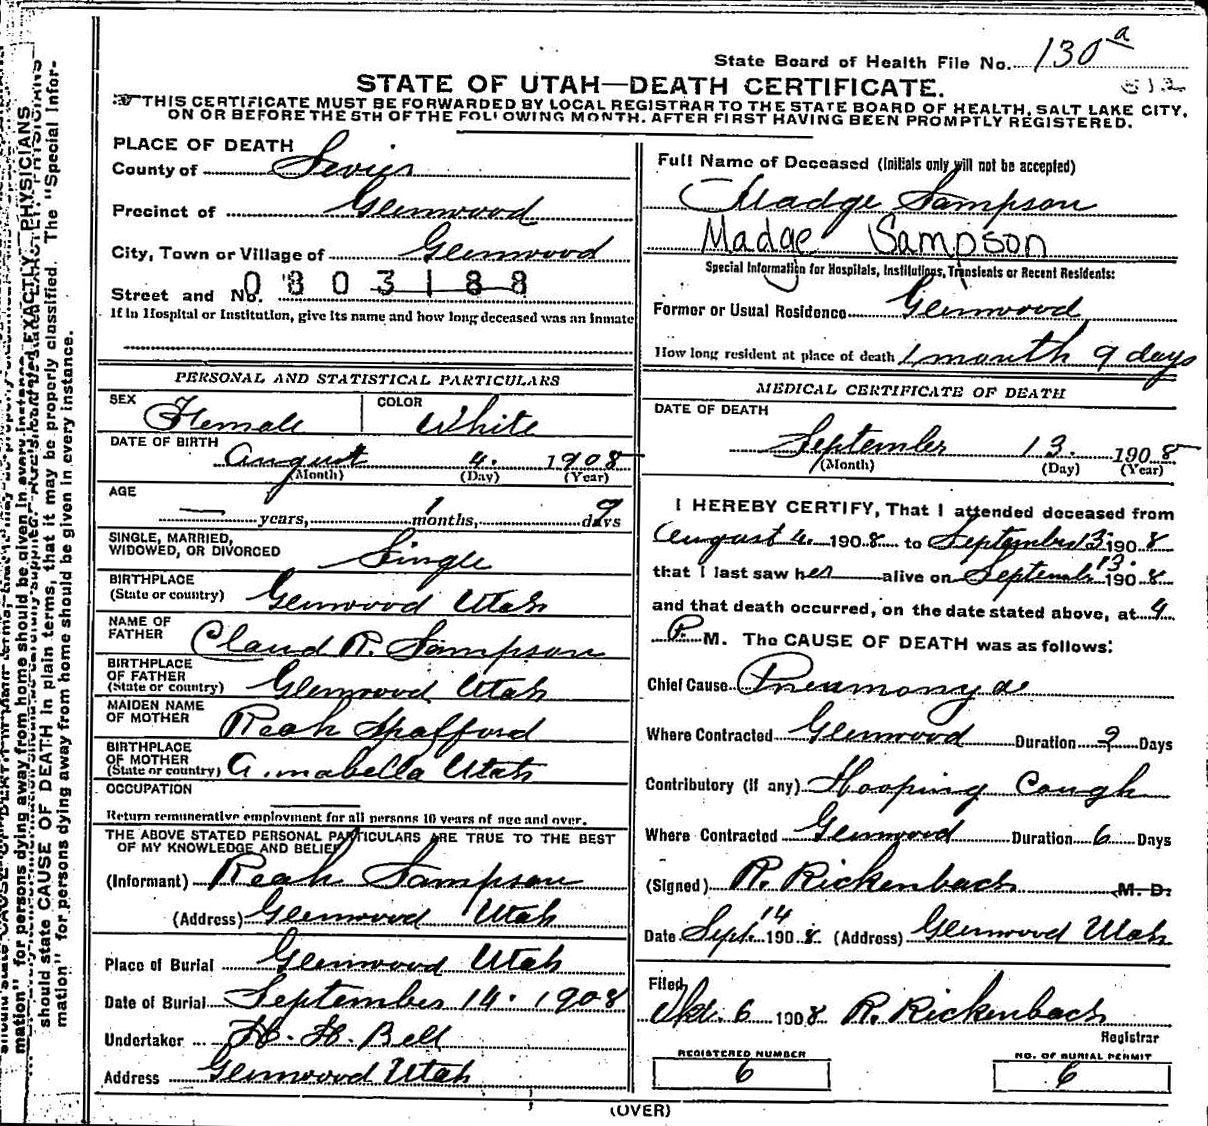 State Board of Health File No. 130 a
STATE OF UTAH—DEATH CERTIFICATE.
THIS CERTIFICATE MUST BE FORWARDED BY LOCAL REGISTRAR TO THE STATE BOARD OF HEALTH, SALT LAKE CITY,
ON OR BEFORE THE 5TH OF THE FOLLOWING MONTH. AFTER FIRST HAVING BEEN PROMPTLY REGISTERED.
PLACE OF DEATH
County of Sevier
Precinct of Glenwood
City, Town or Village of Glenwood
Street and No. 0803188
If in Hospital or Institution, give its name and how long deceased was an inmate
PERSONAL AND STATISTICAL PARTICULARS
SEX Female COLOR White
DATE OF BIRTH
August 4. 1908
(Month) (Day) (Year)
AGE
— years, 1 months, 9 days
SINGLE, MARRIED,
WIDOWED, OR DIVORCED Single
BIRTHPLACE
(State or country) Glenwood Utah
NAME OF
FATHER Claud R. Sampson
BIRTHPLACE
OF FATHER
(State or country) Glenwood Utah
MAIDEN NAME
OF MOTHER Reah Spafford
BIRTHPLACE
OF MOTHER
(State or country) Annabella Utah
OCCUPATION
Return remunerative employment for all persons 10 years of age and over.
THE ABOVE STATED PERSONAL PARTICULARS ARE TRUE TO THE BEST
OF MY KNOWLEDGE AND BELIEF
(Informant) Reah Sampson
(Address) Glenwood Utah
Place of Burial Glenwood Utah
Date of Burial September 14. 1908
Undertaker H. H. Bell
Address Glenwood Utah
Full Name of Deceased (Initials only will not be accepted)
Madge Sampson
Madge Sampson
Special Information for Hospitals, Institutions, Transients or Recent Residents:
Former or Usual Residence Glenwood
How long resident at place of death 1 month 9 days
MEDICAL CERTIFICATE OF DEATH
DATE OF DEATH
September 13. 1908
(Month) (Day) (Year)
I HEREBY CERTIFY, That I attended deceased from
August 4. 1908 to September 13. 1908
that I last saw her alive on Septemb 13. 1908
and that death occurred, on the date stated above, at 4
P. M. The CAUSE OF DEATH was as follows:
Chief Cause Pneumonya
Where Contracted Glenwood Duration 2 Days
Contributory (if any) Hooping Cough
Where Contracted Glenwood Duration 6 Days
(Signed) R. Rickenbach M. D.
Date Sept. 14 1908. (Address) Glenwood Utah
Filed
Okt. 6 1908 R. Rickenbach
Registrar
REGISTERED NUMBER
6
NO. OF BURIAL PERMIT
6
(OVER)
mation" for persons dying away from home should be given in every instance.
should state CAUSE OF DEATH in plain terms, that it may be properly classified. The "Special Infor-
mation" for persons dying away from home should be given in every instance.